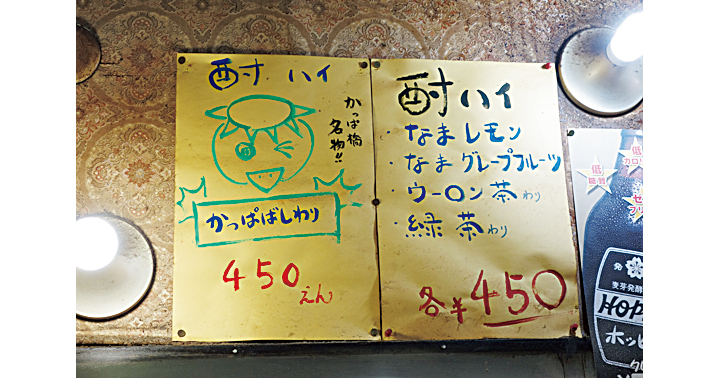 酎ハイ
かっぱ橋
名物!!
かっぱばしわり
450
えん
酎ハイ
なまレモン
なまグレープフルーツ
ウーロン茶わり
緑茶わり
各¥450
低
糖質
低
カロリ
ゼ
プリ
発
麦芽発酵
HOP
ホッピ